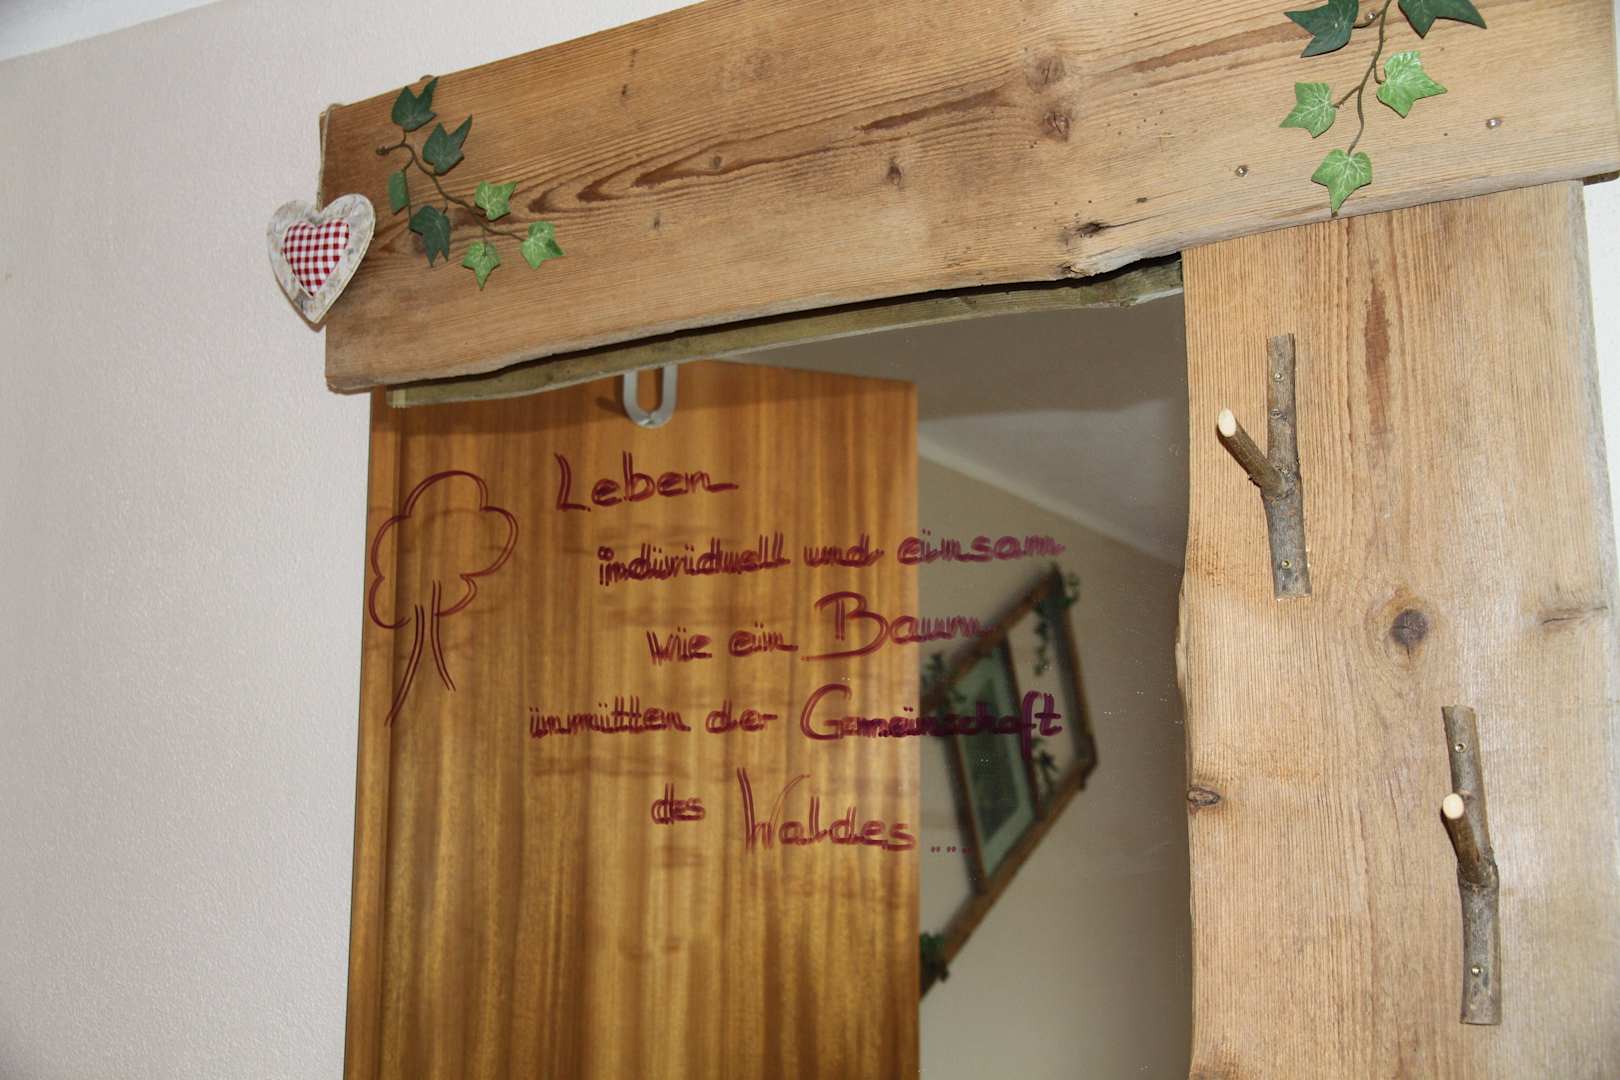 Leben
individuell und einsam
wie ein Baum
inmitten der Gemeinschaft
des Waldes....